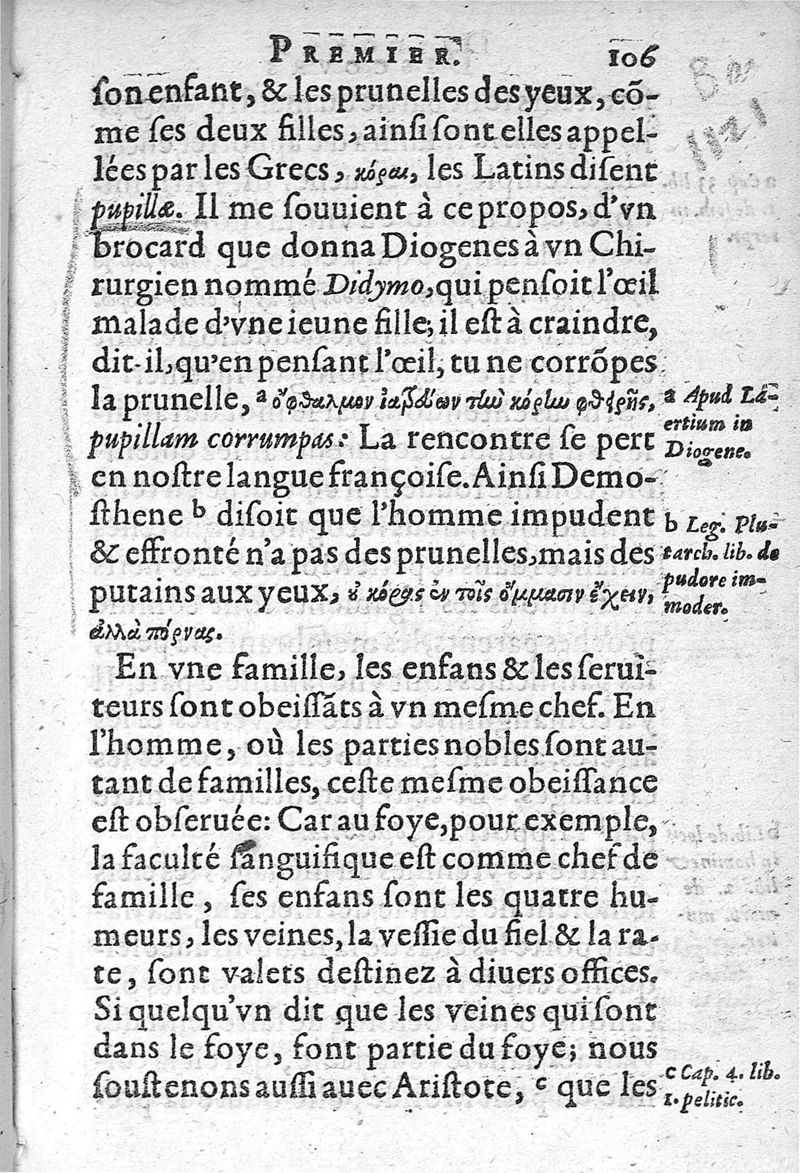 PREMIER. 106
ſon enfant, & les prunelles des yeux, cõ-
me ſes deux filles, ainſi ſont elles appel-
lées par les Grecs, κόραι, les Latins diſent
pupillæ. Il me ſouuient à ce propos, d'vn
brocard que donna Diogenes à vn Chi-
rurgien nommé Didymo, qui penſoit l'œil
malade d'vne ieune fille; il eſt à craindre,
dit-il, qu'en penſant l'œil, tu ne corrõpes
la prunelle, ᵃ ὀφθαλμον
pupillam corrumpas: La rencontre ſe pert
en noſtre langue françoiſe. Ainſi Demo-
ſthene ᵇ diſoit que l'homme impudent
& effronté n'a pas des prunelles, mais des
putains aux yeux, ὀ κόρας ἐν τοῖς ὄμμασιν ἔχειν,
ἀλλὰ πόρνας.
En vne famille, les enfans & les ſerui-
teurs ſont obeiſſãts à vn meſme chef. En
l'homme, où les parties nobles ſont au-
tant de familles, ceſte meſme obeiſſance
eſt obſeruée: Car au foye, pour exemple,
la faculté ſanguifique eſt comme chef de
famille, ſes enfans ſont les quatre hu-
meurs, les veines, la veſſie du fiel & la ra-
te, ſont valets deſtinez à diuers offices.
Si quelqu'vn dit que les veines qui ſont
dans le foye, font partie du foye; nous
ſouſtenons auſſi auec Ariſtote, ᶜ que les
a Apud La-
ertium in
Diogene.
b Leg. Plu-
tarch. lib. de
pudore im-
moder.
c Cap. 4. lib.
1. pelitic.